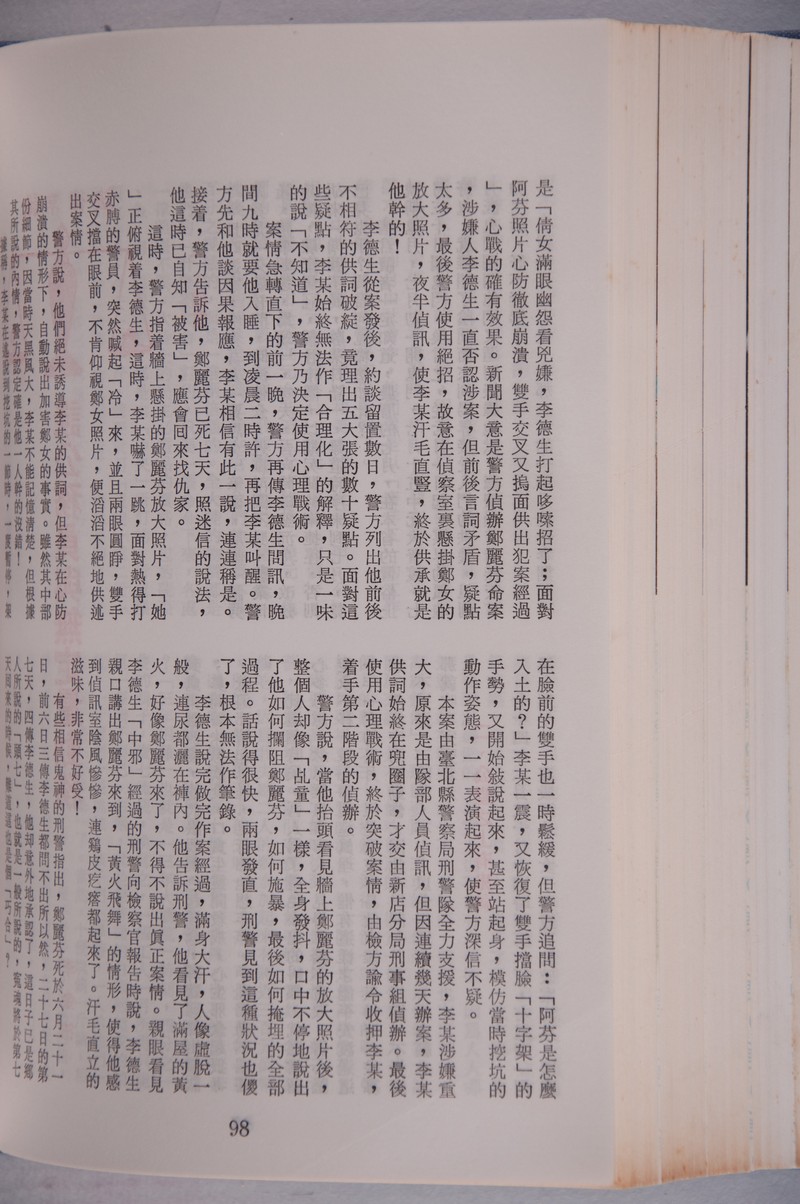 是「倩女滿眼幽怨看兇嫌，李德生打起哆嗦招了；面對
阿芬照片心防徹底崩潰，雙手交叉又摀面供出犯案經過
」，心戰的確有效果。新聞大意是警方偵辦鄭麗芬命案
，涉嫌人李德生一直否認涉案，但前後言詞矛盾，疑點
太多，最後警方使用絕招，故意在偵察室裏懸掛鄭女的
放大照片，夜半偵訊，使李某汗毛直豎，終於供承就是
他幹的！
李德生從案發後，約談留置數日，警方列出他前後
不相符的供詞破綻，竟理出五大張的數十疑點。面對這
些疑點，李某始終無法作「合理化」的解釋，只是一味
的說「不知道」，警方乃決定使用心理戰術。
案情急轉直下的前一晚，警方再傳李德生問訊，晚
間九時就要他入睡，到凌晨二時許，再把李某叫醒。警
方先和他談因果報應，李某相信有此一說，連連稱是。
接着，警方告訴他，鄭麗芬已死七天，照迷信的說法，
他這時已自知「被害」，應會回來找仇家。
這時，警方指着牆上懸掛的鄭麗芬放大照片，「她
」正俯視着李德生，這時，李某嚇了一跳，面對熱得打
赤膊的警員，突然喊起「冷」來，並且兩眼圓睜，雙手
交叉擋在眼前，不肯仰視鄭女照片，便滔滔不絕地供述
出案情。
警方說，他們絕未誘導李某的供詞，但李某在心防
崩潰的情形下，自動說出加害鄭女的事實。雖然其中部
份細節，因當時天黑風大，李某不能記憶清楚，但根據
其所說的內情，警方認定確是他一人幹的沒錯！
據稱，李某在述說到挖坑的一節時，一度暫停，架
在臉前的雙手也一時鬆緩，但警方追問：「阿芬是怎麼
入土的？」李某一震，又恢復了雙手擋臉「十字架」的
手勢，又開始敍說起來，甚至站起身，模仿當時挖坑的
動作姿態，一一表演起來，使警方深信不疑。
本案由臺北縣警察局刑警隊全力支援，李某涉嫌重
大，原來是由隊部人員偵訊，但因連續幾天辦案，李某
供詞始終在兜圈子，才交由新店分局刑事組偵辦。最後
使用心理戰術，終於突破案情，由檢方諭令收押李某，
着手第二階段的偵辦。
警方說，當他抬頭看見牆上鄭麗芬的放大照片後，
整個人却像「乩童」一樣，全身發抖，口中不停地說出
了他如何攔阻鄭麗芬，如何施暴，最後如何掩埋的全部
過程。話說得很快，兩眼發直，刑警見到這種狀況也儍
了，根本無法作筆錄。
李德生說完做完作案經過，滿身大汗，人像虛脫一
般，連尿都灑在褲內。他告訴刑警，他看見了滿屋的黃
火，好像鄭麗芬來了，不得不說出眞正案情。親眼看見
李德生「中邪」經過的刑警向檢察官報告時說，李德生
親口講出鄭麗芬來到，「黃火飛舞」的情形，使得他感
到偵訊室陰風慘慘，連鷄皮疙瘩都起來了。汗毛直立的
滋味，非常不好受！
有些相信鬼神的刑警指出，鄭麗芬死於六月二十一
日，前六日三傳李德生都問不出所以然，二十七日的第
七天，四傳李德生，他却意外地承認了，這日子已是鄉
人所說的「頭七」，也就是一般所說的，寃魂將於第七
天回來的時候，難道這也是個「巧合」？
98